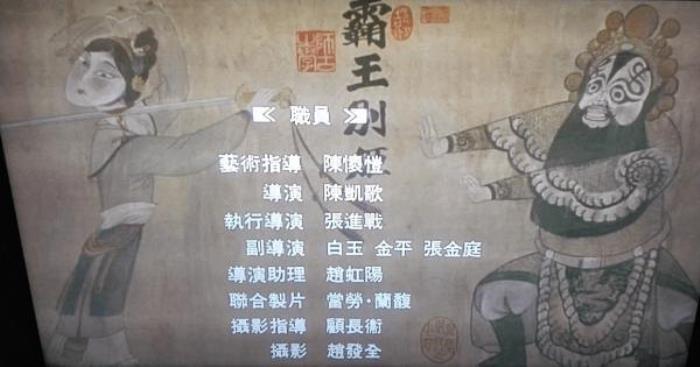 霸王別姬
職員
藝術指導 陳懷愷
導演 陳凱歌
執行導演 張進戰
副導演 白玉 金平 張金庭
導演助理 趙虹陽
聯合製片 當勞·蘭馥
攝影指導 顧長衛
攝影 趙發全